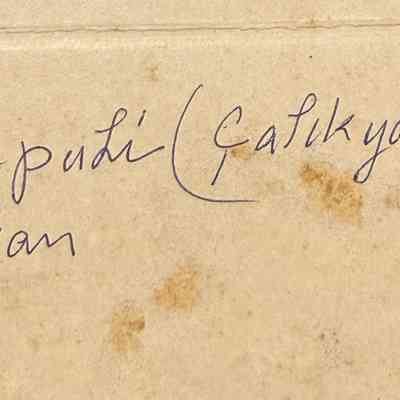 puli (Çalıkya
an